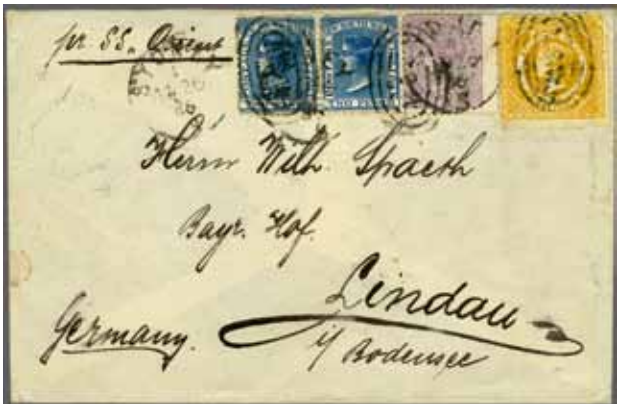 pr SS. Orient
TWO PENCE
Herrn Wilh. Spaeth
Bayr. Hof.
Lindau
Germany.
i/ Bodensee